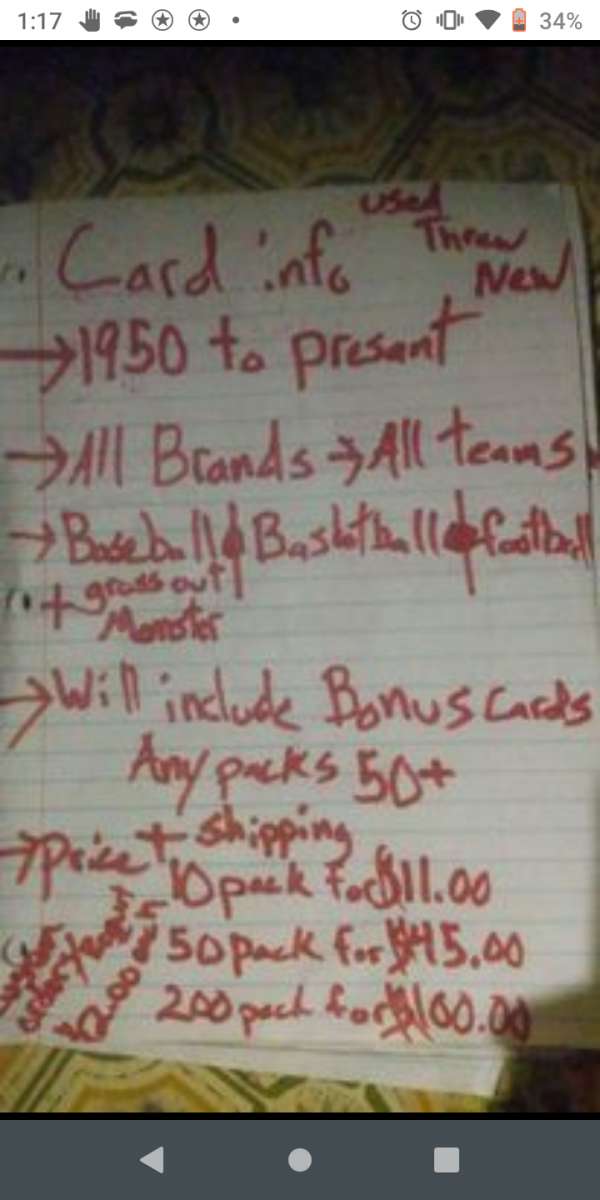 1:17
34%
used
Threw
New
Card info
→1950 to presant
→All Brands → All teams
→Baseball Basketball football
+ gross out
Monster
→Will include Bonus cards
Any packs 50+
→Price + shipping
10 pack for $11.00
50 pack for $45.00
200 pack for $100.00
custom
order
$2.00